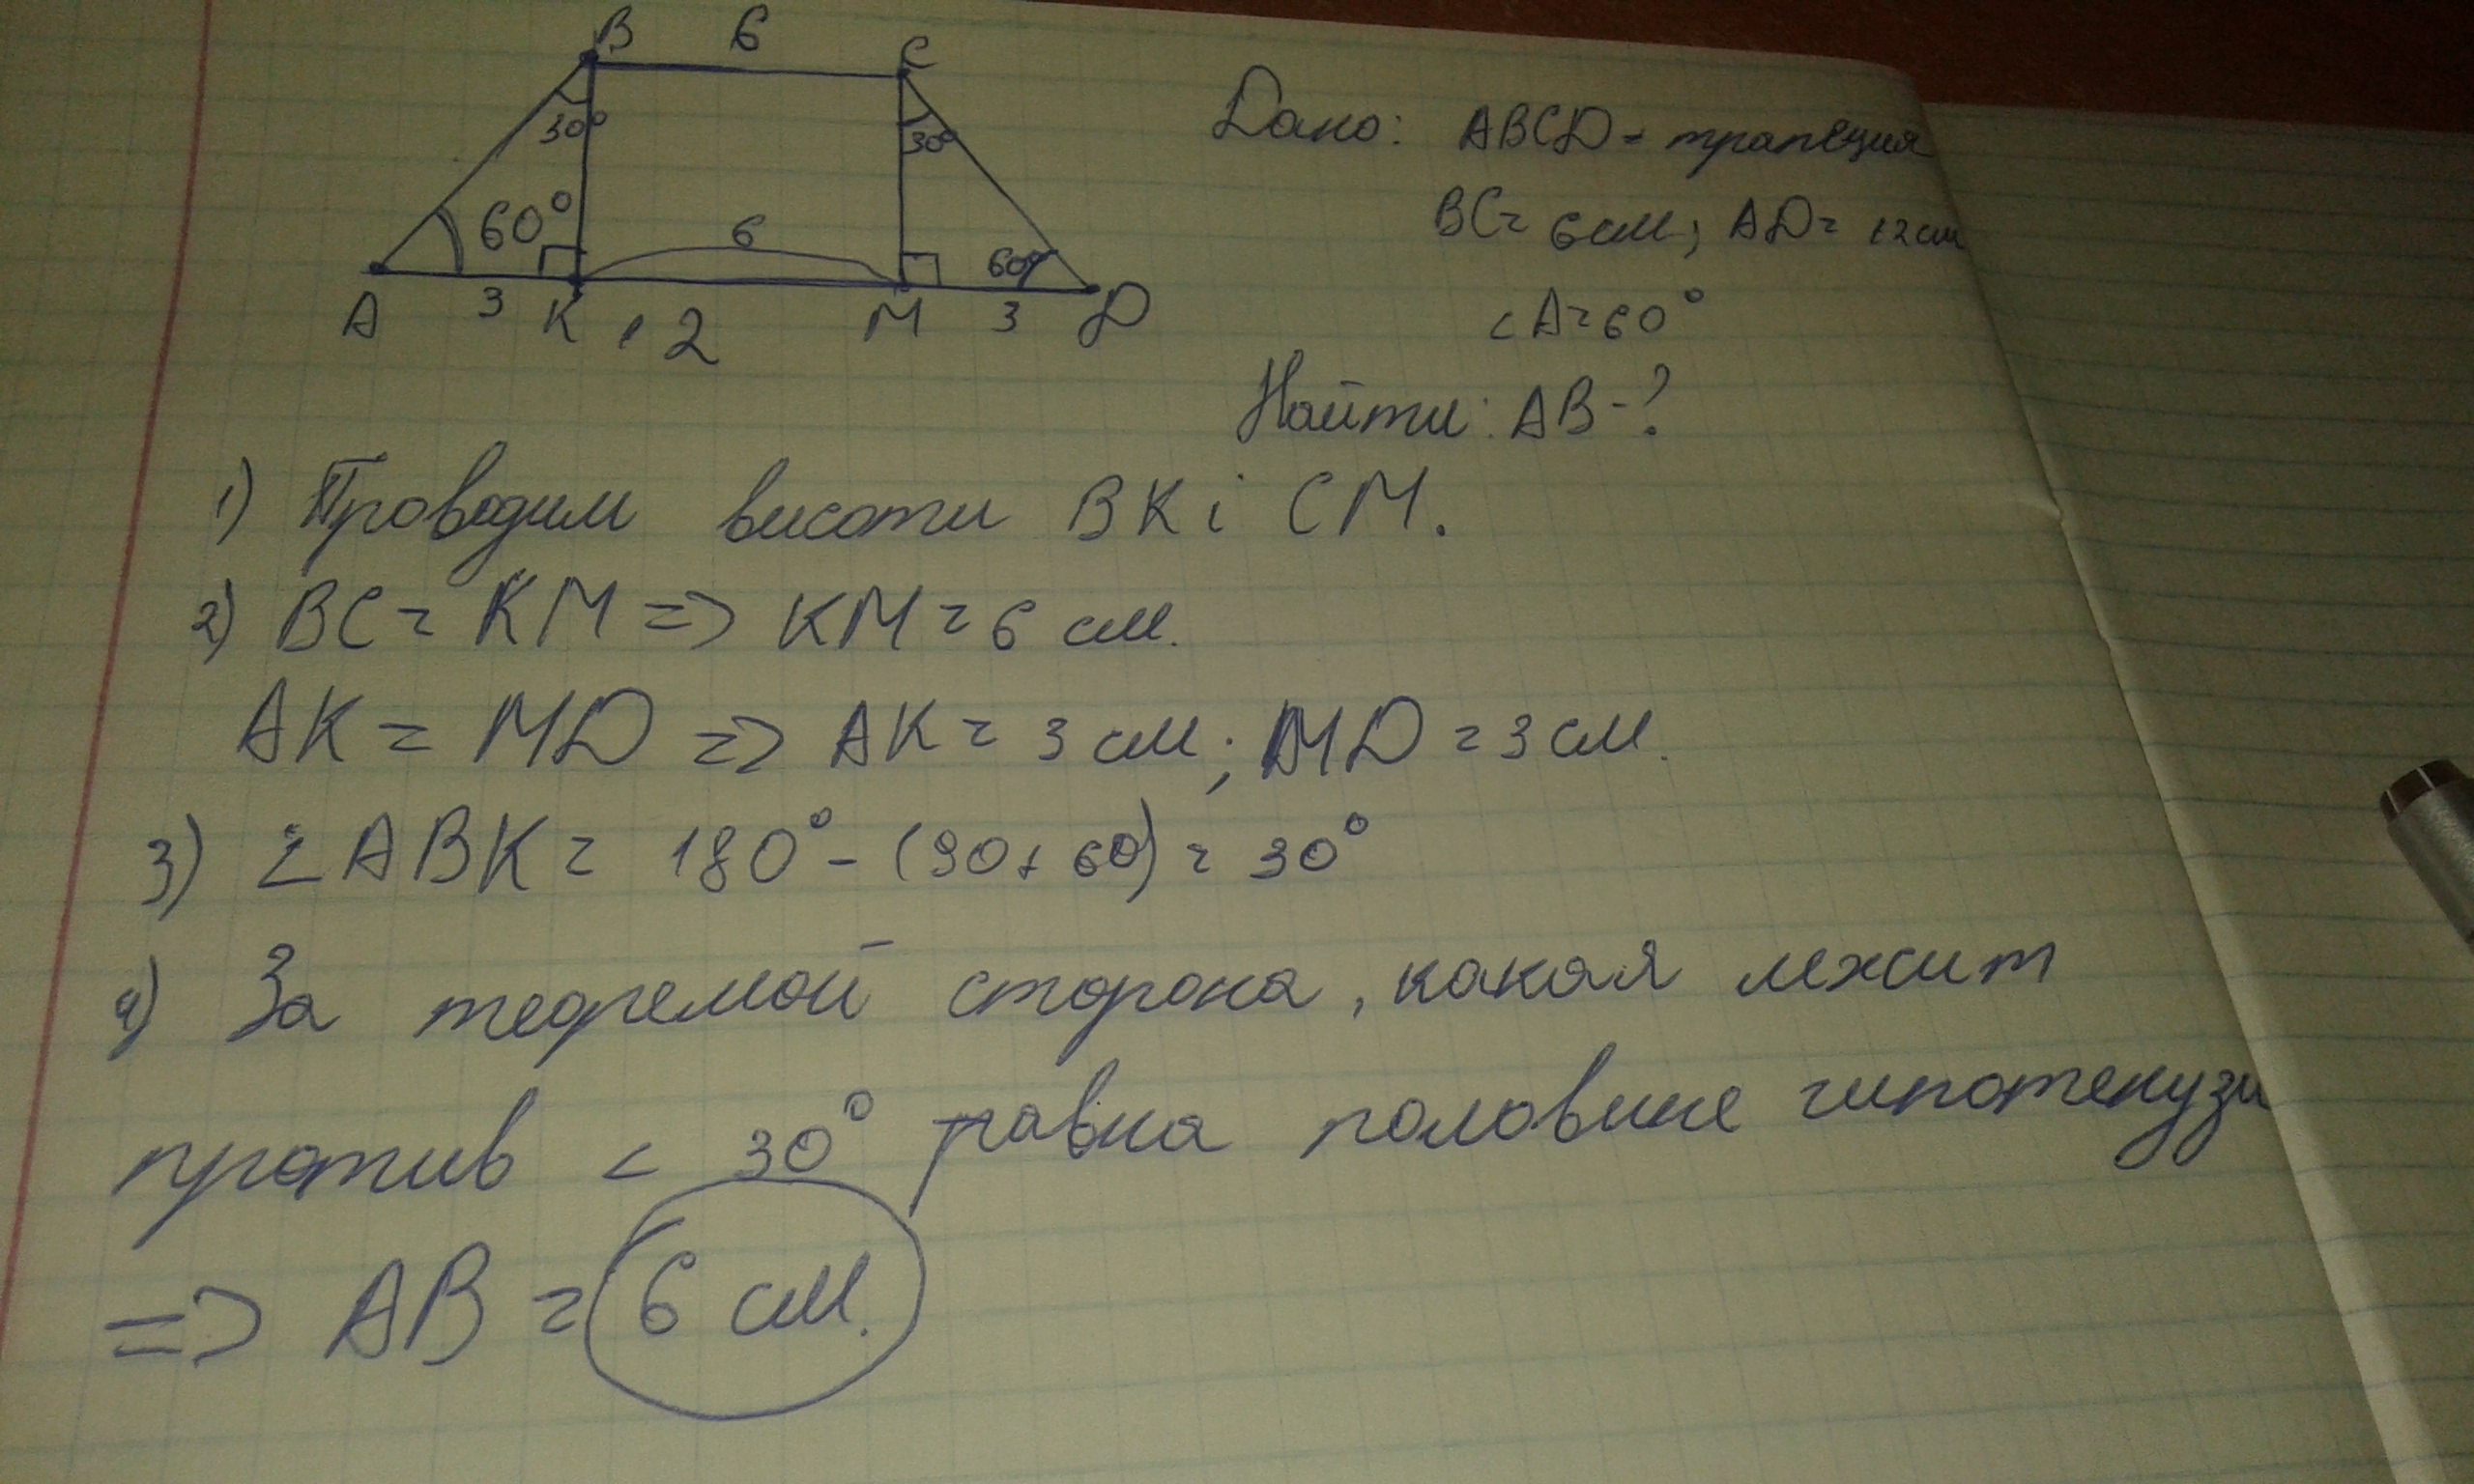 B 6 C
Дано: ABCD - трапеция
30° 30°
BC = 6 см; AD = 12 см
60° 6 60°
A 3 K 12 M 3 D
<A = 60°
Найти: AB - ?
1) Проводим висоти BK і CM.
2) BC = KM => KM = 6 см.
AK = MD => AK = 3 см; MD = 3 см.
3) ∠ABK = 180° - (90 + 60) = 30°
4) За теоремой сторона, какая лежит
против < 30° равна половине гипотенузи
=> AB = 6 см.